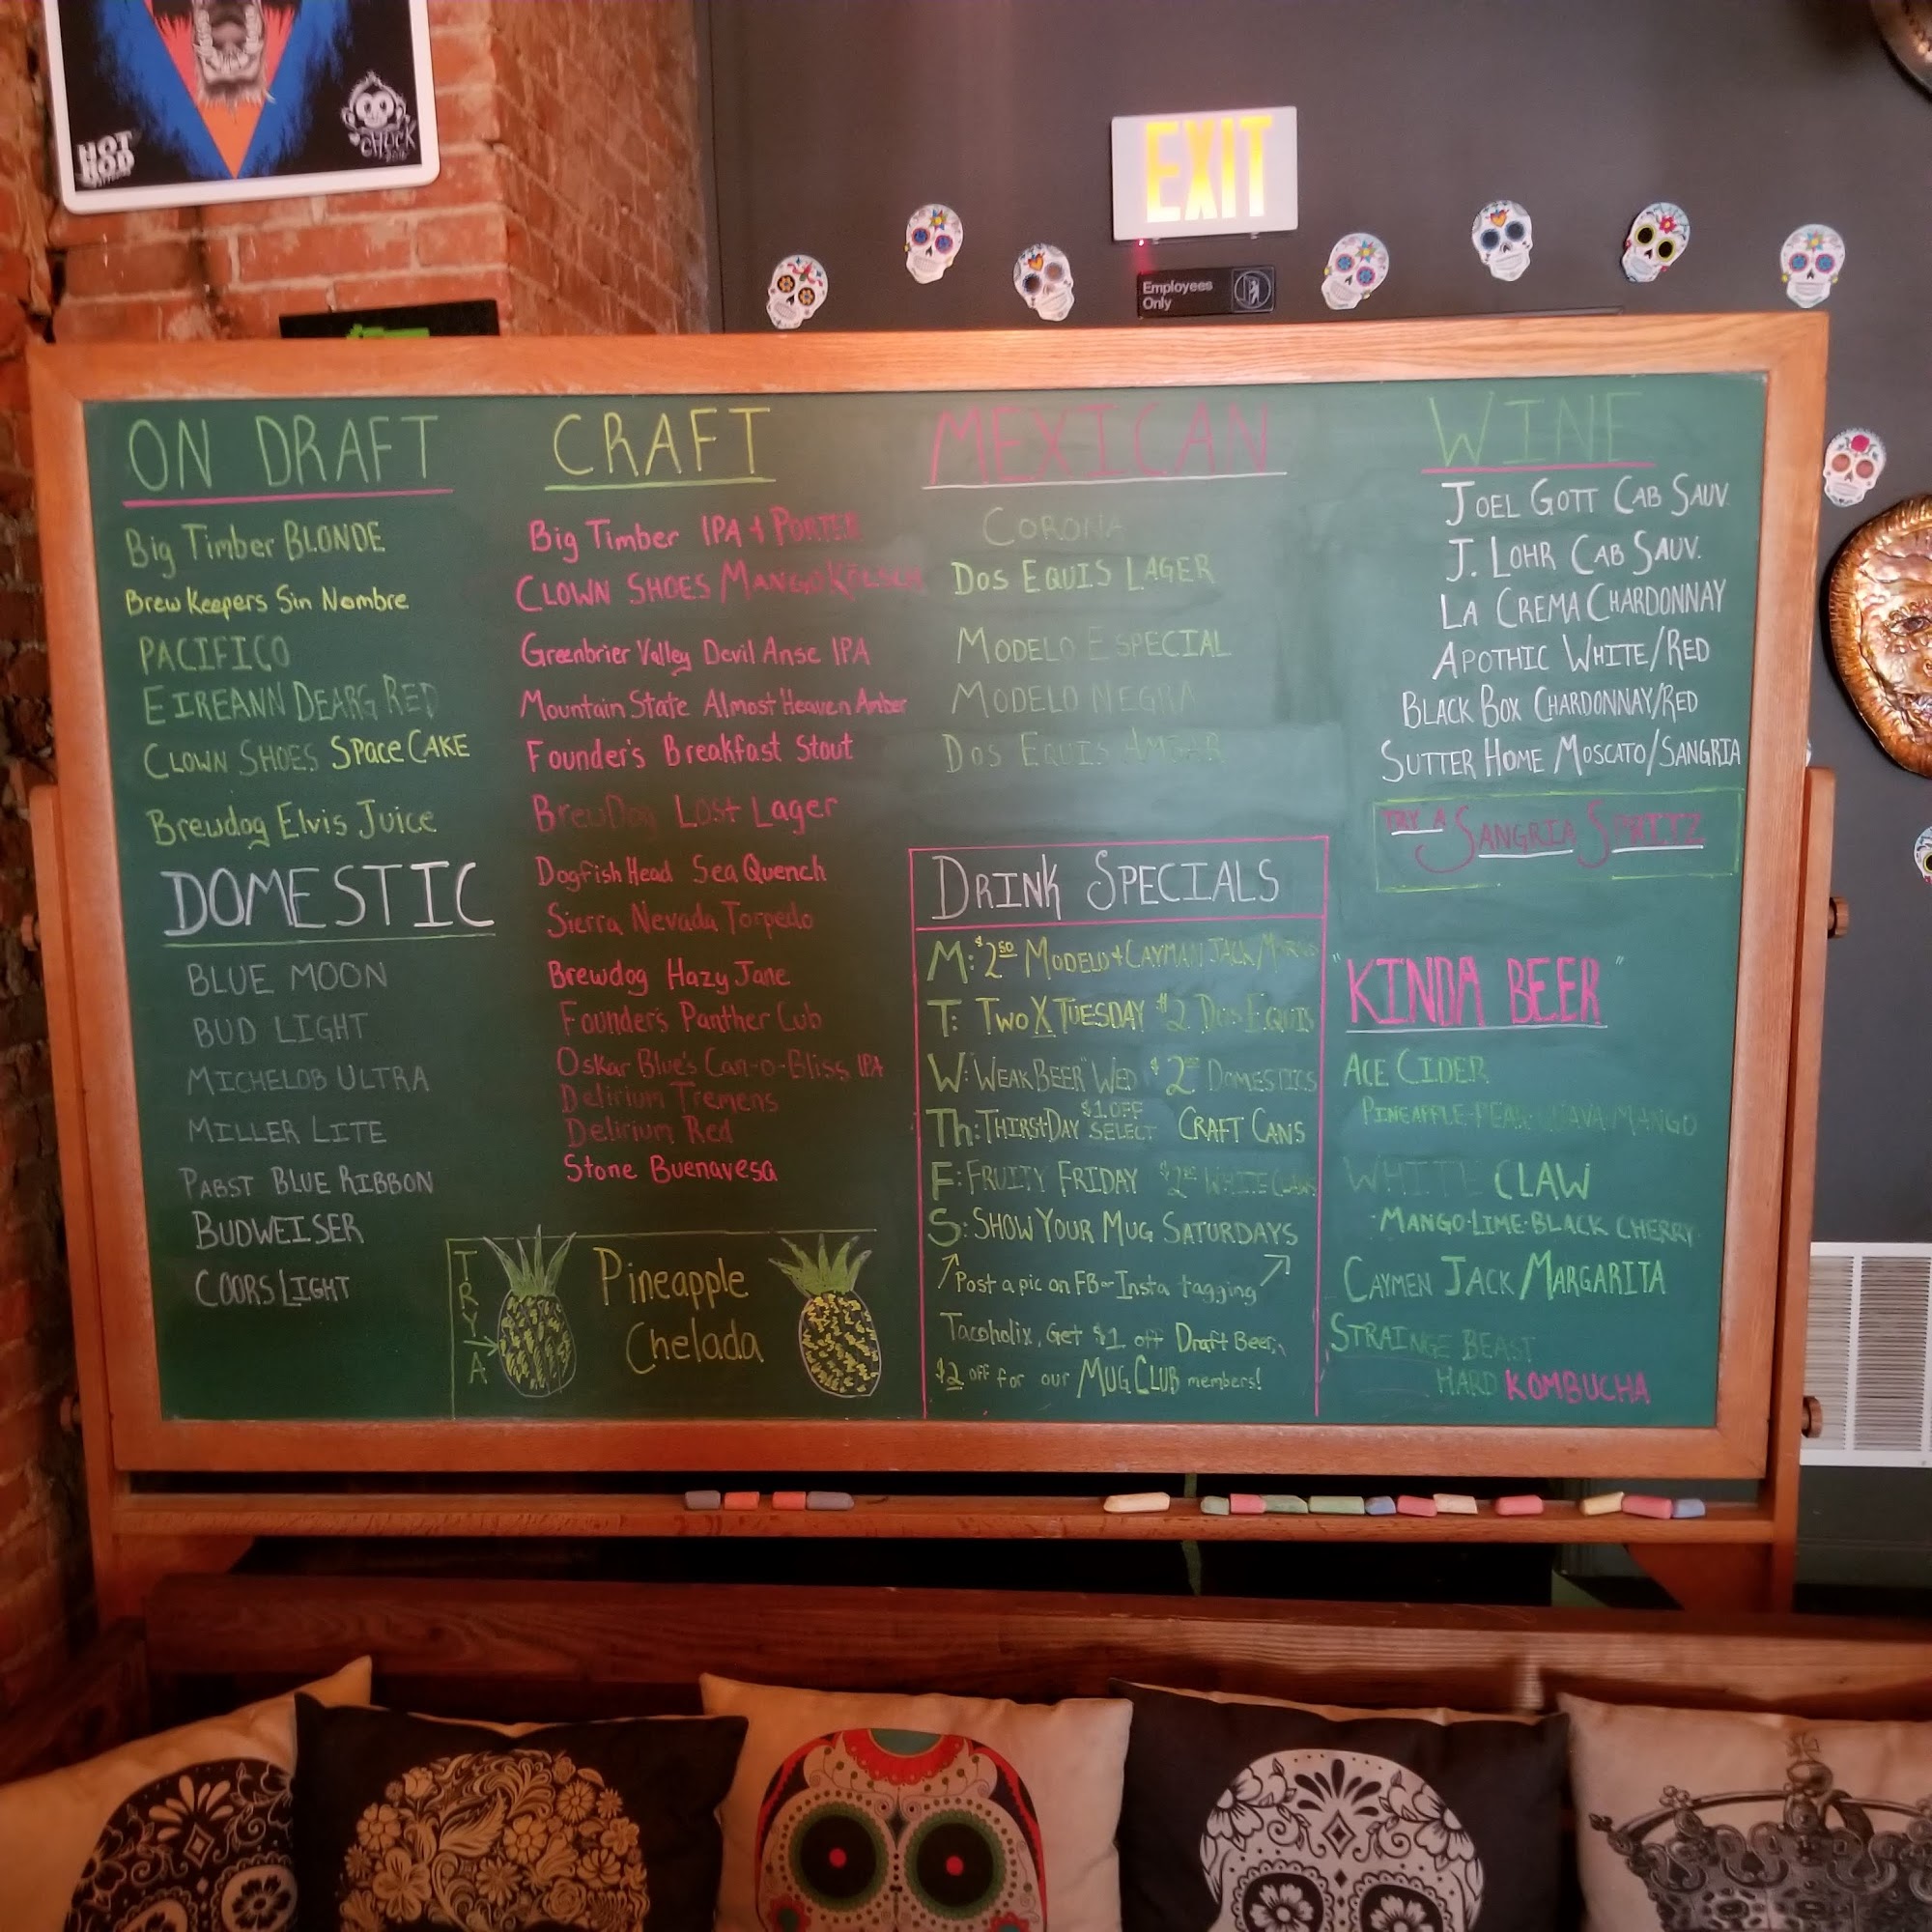 HOT
ROD
CHUCK
EXIT
Employees
Only
ON DRAFT
Big Timber BLONDE
Brew Keepers Sin Nombre
PACIFICO
EIREANN DEARG RED
CLOWN SHOES Space CAKE
Brewdog Elvis Juice
DOMESTIC
BLUE MOON
BUD LIGHT
MICHELOB ULTRA
MILLER LITE
PABST BLUE RIBBON
BUDWEISER
COORS LIGHT
CRAFT
Big Timber IPA + PORTER
CLOWN SHOES MANGO KÖLSCH
Greenbrier Valley Devil Anse IPA
Mountain State Almost Heaven Amber
Founder's Breakfast Stout
BrewDog Lost Lager
Dogfish Head Sea Quench
Sierra Nevada Torpedo
Brewdog Hazy Jane
Founder's Panther Cub
Oskar Blue's Can-o-Bliss IPA
Delirium Tremens
Delirium Red
Stone Buenavesa
TRY A
Pineapple
Chelada
MEXICAN
CORONA
DOS EQUIS LAGER
MODELO ESPECIAL
MODELO NEGRA
DOS EQUIS AMBAR
DRINK SPECIALS
M: $2.50 MODELO + CAYMAN JACK/
T: TWO X TUESDAY $2 DOS EQUIS
W: "WEAK BEER" WED $2 DOMESTICS
Th: THIRSTDAY $1 OFF SELECT CRAFT CANS
F: FRUITY FRIDAY $2 WHITE CLAWS
S: SHOW YOUR MUG SATURDAYS
Post a pic on FB or Insta tagging
Tacoholix, Get $1 off Draft Beer,
$2 off for our MUG CLUB members!
WINE
JOEL GOTT CAB SAUV.
J. LOHR CAB SAUV.
LA CREMA CHARDONNAY
APOTHIC WHITE/RED
BLACK BOX CHARDONNAY/RED
SUTTER HOME MOSCATO/SANGRIA
TRY A SANGRIA SPRITZ
"KINDA BEER"
ACE CIDER
PINEAPPLE-PEAR-GUAVA-MANGO
WHITE CLAW
-MANGO-LIME-BLACK CHERRY
CAYMEN JACK/MARGARITA
STRAINGE BEAST
HARD KOMBUCHA